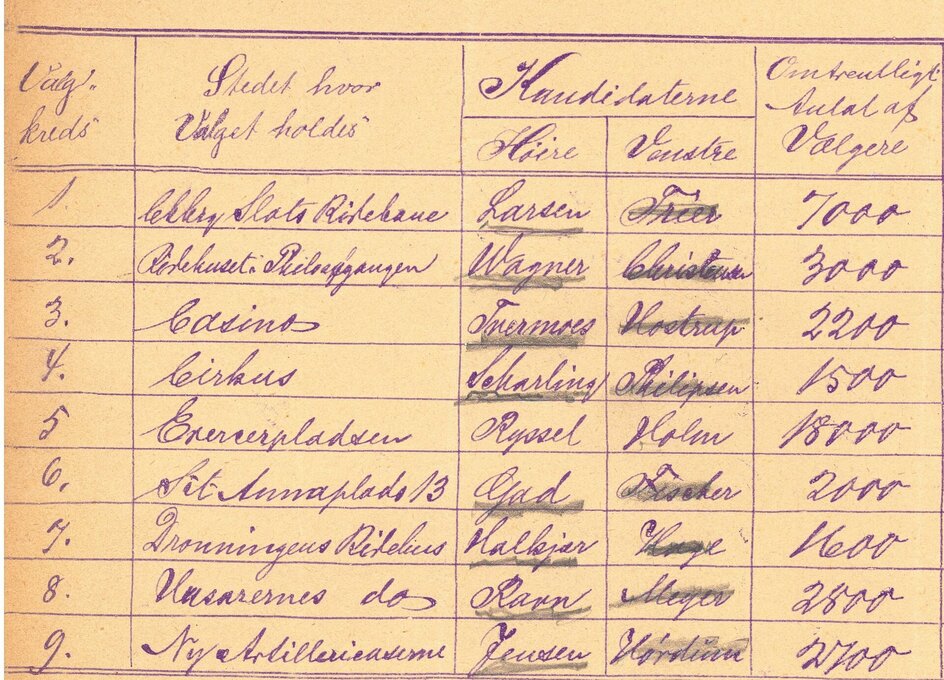 Valg- Stedet hvor Kandidaterne Omtrentligt
kreds Valget holdes Høire Venstre Antal af
Vælgere
1 Chbrg Slots Ridebane Larsen Trier 7000
2. Ridehuset i Philosofgangen Wagner Christensen 3000
3. Casino Tvermoes Hostrup 2200
4. Cirkus Scharling Philipsen 1500
5 Exercerpladsen Ryssel Holm 18000
6. Sct Annaplads 13 Gad Fischer 2000
7. Dronningens Ridehus Halkjær Hage 1600
8. Husarernes do Ravn Meyer 2800
9. Ny Artillericaserne Jensen Hørdum 2700